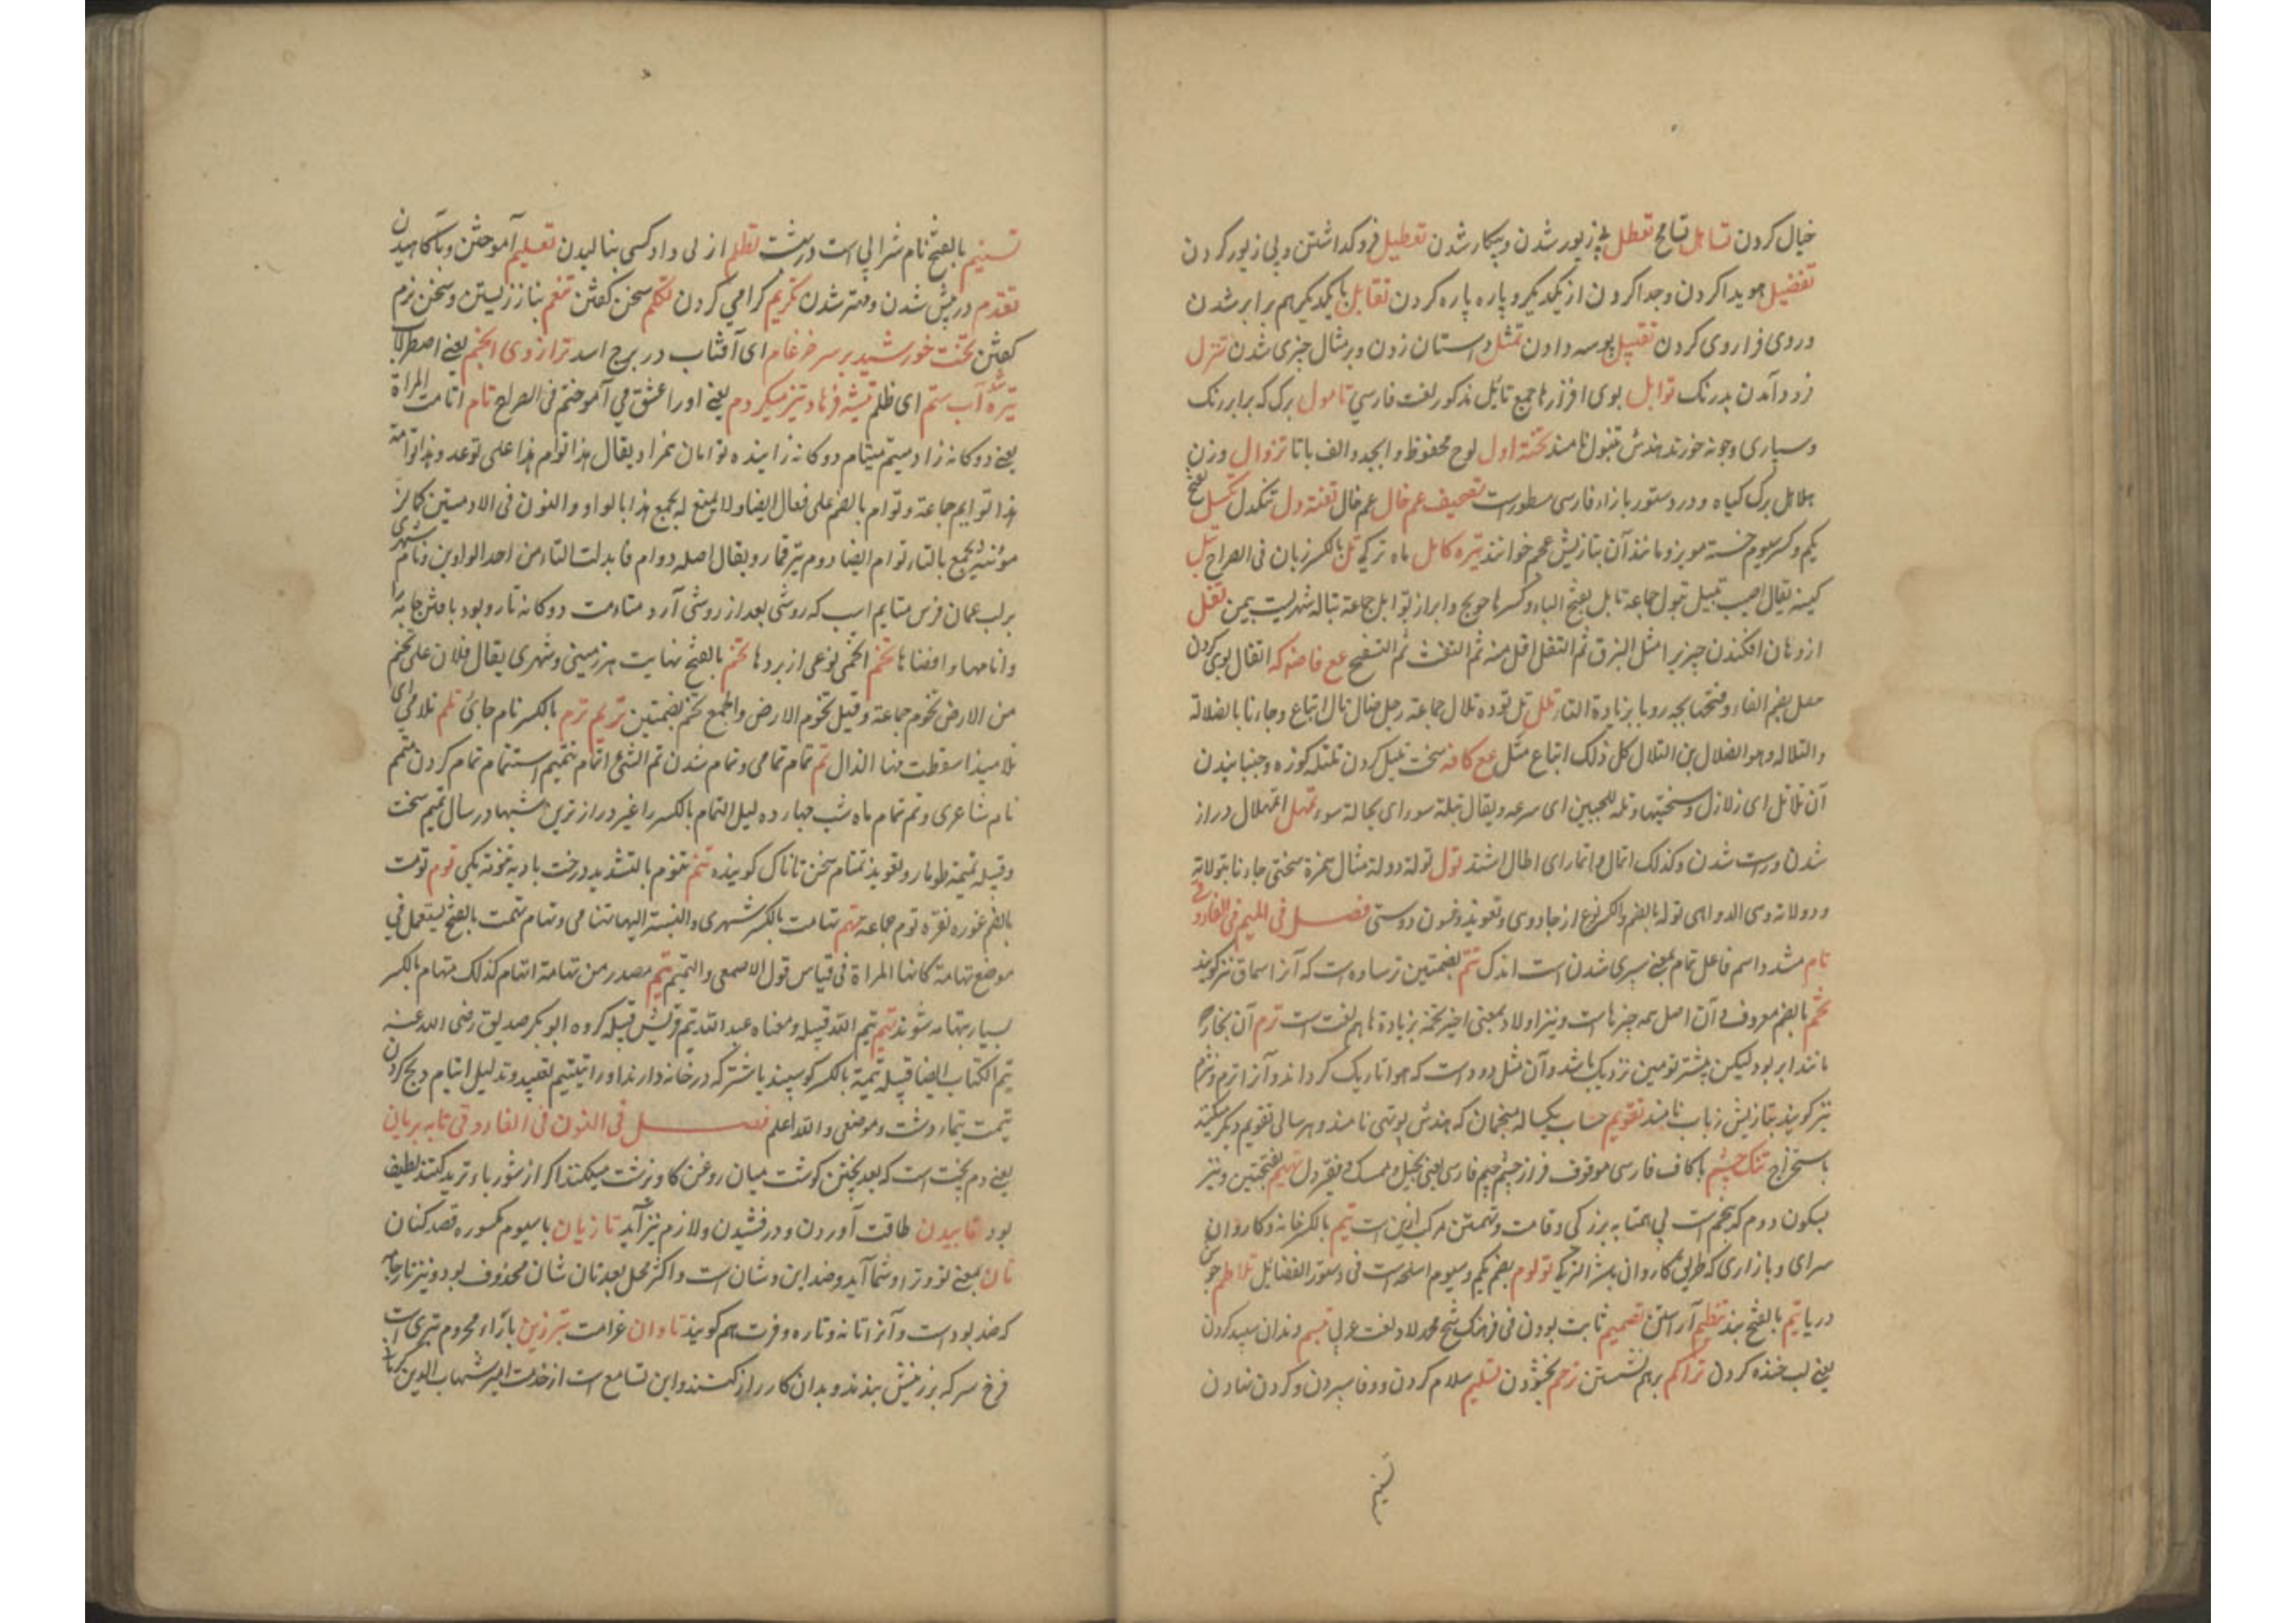 خیال کردن تساهل تسامح تعطل بی زیور شدن و بیکار شدن تعطیل فروکداشتن و بی زیور کردن
تفضیل هویدا کردن و جدا کردن از یکدیکر و پاره پاره کردن تقابل با یکدیکر هم برابر شدن
و روی فرا روی کردن تقبیل بوسه دادن تمثل داستان زدن و بر مثال چیزی شدن تنزل
فرود آمدن بدرنک توابل بوی افزارها جمع تابل مذکور لغت فارسی تامول برک که برابر رنک
و سپاری و چونه خورند هندش تنبول نامند تخته اول لوح محفوظ و ابجد و الف با تا تزوال وزن
هلاهل برک کیاه و در دستور بازاء فارسی مسطورست تصحیف عم خال عم خال تفته دل تنکدل تکسل بفتح
یکم و کسر سیوم خسته مویز و مانند آن بتازیش عجم خوانند تیره کامل ماه ترکی تل بالکسر زبان فی الصراح تبل
کینه یقال اصیب تبیل تبول جماعة تابل بفتح الباء و کسرها حویج وابراز توابل جماعة تباله شهریست بیمن تفل
از دهان افکندن چیزیرا مثل البزق ثم التفل اقل منه ثم النفث ثم النفخ مع فاضه که اتفال بوی کردن
بضم الفاء و فتحها بچه روبا بزیادة التاء تلل تل توده تلال جماعة رجل ضال تال اتباع و جاءنا بالضلالة
والتلاله و هو الضلال بن التلال کل ذلک اتباع مثل مع کافه سخت تلیل کردن تلتله کوزه و جنبانیدن
آن تلاتل ای زلازل و سختیها و تله للجبین ای صرعه و یقال تبلة سوء ای بحالة سوء تمهل اتمهلال دراز
شدن و راست شدن و کذلک اتمال و اتمار ای اطال اشتد تول توله دوله مثال همزة سختی جاءنا بتولاته
و دولاته و هی الدواهی توله بالضم و الکسر نوع از جادوی و تعویذ و فسون دوستی فصل فی المیم فی الفارد
تام مشدد اسم فاعل تمام بمعنی سپری شدن است اندک تتم بضمتین ترساده است که آنرا سماق نیز کویند
تخم بالضم معروف و آن اصل همه چیزهاست و نیز اولاد بمعنی اخیر تخمه بزیادة ها هم لغت است ترم آن بخار
مانند ابر بود لیکن بیشتر تو مین نزدیک باشد و آن مثل دود است که هوا تاریک کرداند و آنرا ترم و نزم
نیز کویند بتازیش زباب نامند تقویم حساب یکساله منجمان که هندش پوتهی نامند و هر سالی تقویم دیکر میکنند
باستخراج تنک چشم با کاف فارسی موقوف فراز چشم جیم فارسی یعنی بخیل و ممسک و نیز دل تهم بفتحتین و نیز
بسکون دوم که بنجم است بی همتا به بزرکی و قامت و تهمتن مرکب ازین است تیم بالکسر خانه و کاروان
سرای و بازاری که طریق کاروان باشد الترکی تولوم بضم یکم و سیوم اسلحه است فی دستور الفضائل تلاطم جوش
دریا یتیم بالفتح بند تنظیم آراستن تصمیم ثابت بودن فی فرهنک شیخ محمد لاد لغت عربی تبسم دندان سپید کردن
یعنی لب خنده کردن تراکم بر هم نشستن ترحم بخشودن تسلیم سلام کردن و وفا سپردن و کردن نهادن
تسنیم
تسنیم بالفتح نام شرابی است در بهشت تظلم از بی دادکسی بنالیدن تعلیم آموختن و بآکاهیدن
تقدم در پیش شدن و مهتر شدن تکریم کرامی کردن تکلم سخن کفتن تنعم بناز زیستن و سخن نرم
کفتن تحت خورشید بر سر ضرغام ای آفتاب در برج اسد ترازوی انجم یعنی اصطرلاب
تیره شد آب ستم ای ظلم تیشه فرهاد تیز میکردم یعنی او را عشق می آموختم فی الصراح تام اتامت المراة
یعنی دوکانه زاد متیم میتام دوکانه زاینده توامان همزاد یقال هذا توام هذا علی فوعل و هذا توامة
هذا توایم جماعة و توام بالضم علی فعال ایضا ولا یمنع له یجمع هذا بالواو و النون فی الادمیین کما لان
مؤنثه یجمع بالتاء توام ایضا دوم تیر قمار و یقال اصله دوام فابدلت التاء من احد الواوین و نام شهری
بر لب عمان فرس متایم اسپ که روشی بعد از روشی آرد متاءمت دوکانه تار و بود بافتن جامه را
و انامها و افضناها تخم اتحمی نوعی از بردها تخم بالفتح نهایت هر زمینی و شهری یقال فلان علی تخم
من الارض تخوم جماعة و قیل تخوم الارض و الجمع تخم بضمتین تریم ترم بالکسر نام جائی تلم تلامی ای
تلامیذ اسقطت منها الذال تم تمام تمامی و تمام شدن تم الشی اتمام تتمیم استتمام تمام کردن متمم
نام شاعری و تم تمام ماه شب چهارده لیل التمام بالکسر لا غیر دراز ترین شبها در سال تمیم سخت
و قبیله تمیمة طومار و تعویذ تمتام سخن تاناک کوینده تنم تنوم بالتشدید درخت بادیه تنومة یکی توم تومت
بالضم غوره نقره توم جماعة تهم تهامت بالکسر شهری و النسبة الیها تهامی و تهام تهمت بالفتح یستعمل فی
موضع تهامة کانها المراة فی قیاس قول الاصمعی و التهم تهم مصدر من تهامة اتهام کذلک متهام بالکسر
بسیار بتهامه شونده تیم تیم الله قبیله و معناه عبد الله تیم قریش قبیله کروه ابوبکر صدیق رضی الله عنه
تیم الکتاب ایضا قبیله تیمة بالکسر کوسپند یا شتر که در خانه دارند او را تیتیم تعبید و تذلیل اتیام ذبح کردن
تیمت تیماء دشت و موضعی و الله اعلم فصل فی النون فی الفاروقی تابه بریان
یعنی دم پخت است که بعد پختن کوشت میان روغن کاو برشت میکنند اکر از شوربا و ترید کنند لطیف
بود تابیدن طاقت آوردن و درفشیدن و لازم نیز آید تازیان باسیوم مکسوره قصد کنان
تان بمعنی تو و ترا و شما آید و ضد این و شان است و اکثر محل بعد تان شان محذوف بود و نیز تار جامه
که ضد پود است و آنرا تانه و تاره و فرت هم کویند تاوان غرامت تبرزین بازاء محروم تبری است
فرخ سر که بر زینش بندند و بدان کارزار کنند و این تسامع است از خدمت امیر شهاب الدین